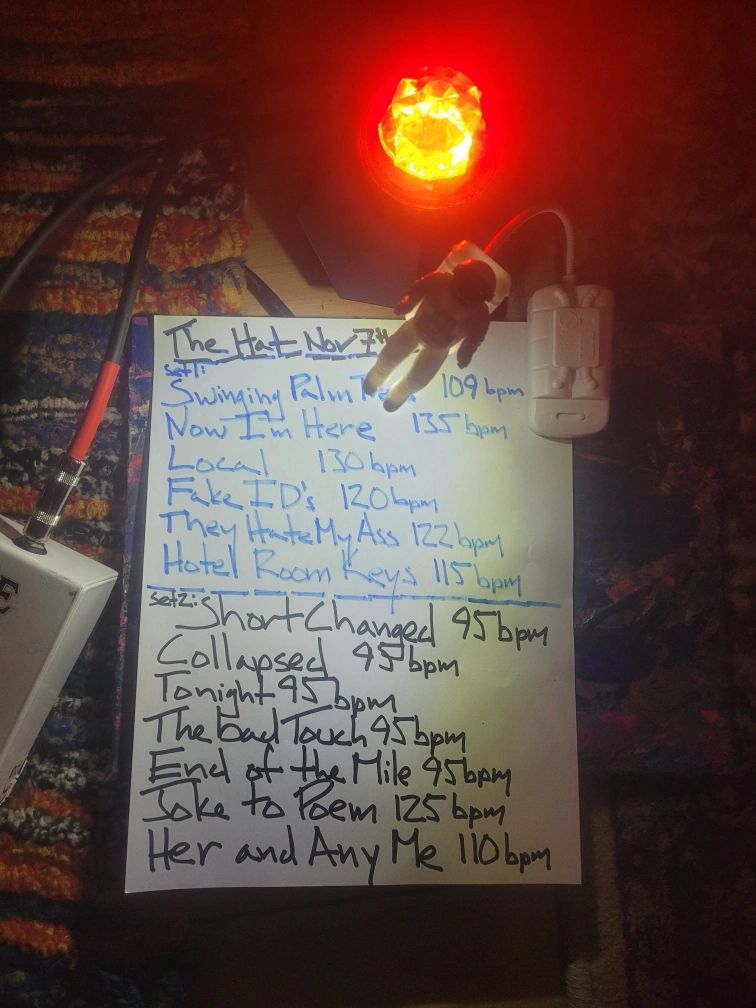 The Hat Nov 7th
set1:
Swinging Palm 109bpm
Now I'm Here 135bpm
Local 130bpm
Fake ID's 120bpm
They Hate My Ass 122bpm
Hotel Room Keys 115bpm
set2:
Short Changed 95bpm
Collapsed 95bpm
Tonight 95bpm
The bad Touch 95bpm
End of the Mile 95bpm
Joke to Poem 125bpm
Her and Any Me 110bpm